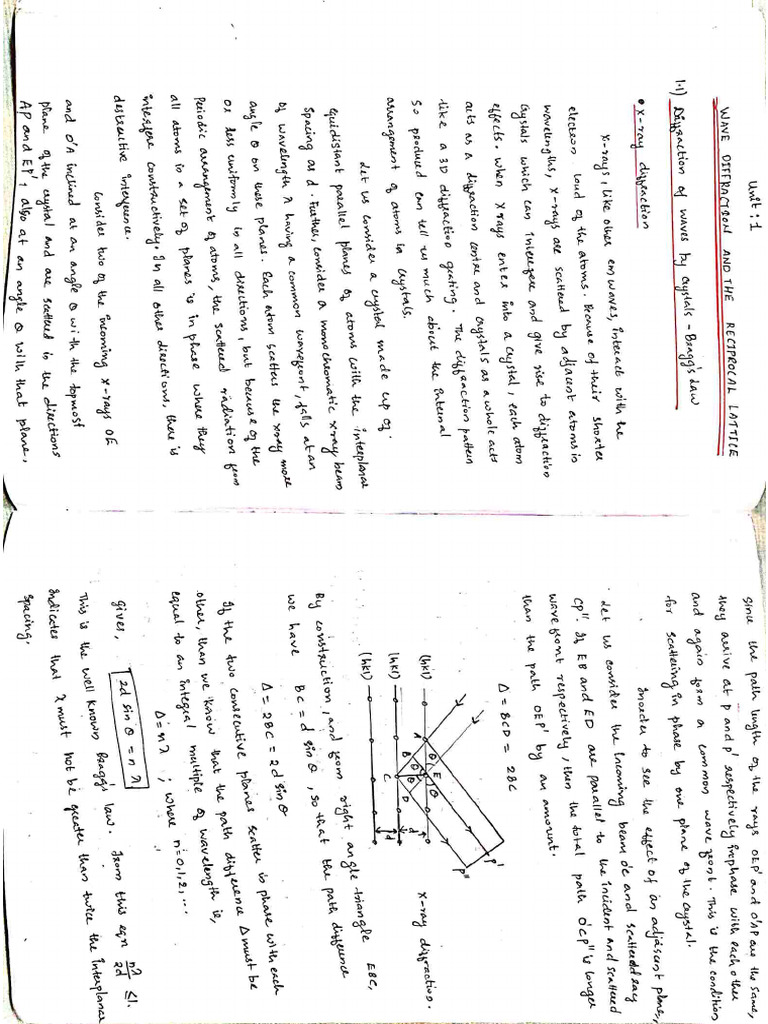 Unit : 1
WAVE DIFFRACTION AND THE RECIPROCAL LATTICE
1.1) Diffraction of waves by Crystals - Bragg's Law
• X-ray diffraction
X-rays, like other em waves, interact with the
electron loud of the atoms. Because of their shorter
wavelengths, X-rays are scattered by adjacent atoms in
Crystals which can interfere and give rise to diffraction
effects. When X rays enter into a crystal, each atom
acts as a diffraction centre and crystals as a whole acts
like a 3D diffraction grating. The diffraction pattern
so produced can tell us much about the internal
arrangement of atoms in crystals.
Let us consider a crystal made up of
equidistant parallel planes of atoms with the interplanar
spacing as d. Further, consider a monochromatic x ray beam
of wavelength λ having a common wavefront, falls at an
angle θ on these planes. Each atom scatters the xray more
or less uniformly in all directions, but because of the
Periodic arrangement of atoms, the scattered radiation from
all atoms in a set of planes is in phase where they
interfere constructively. In all other directions, there is
destructive interference.
Consider two of the incoming X-rays OE
and O'A inclined at an angle θ with the topmost
plane of the crystal and are scattered in the directions
AP and EP', also at an angle θ with that plane,
since the path length of the rays OEP' and O'AP are the same,
they arrive at P and P' respectively inphase with each other
and again form a common wave front. This is the condition
for scattering in phase by one plane of the crystal.
Inorder to see the effect of an adjascent plane,
let us consider the incoming beam O'C and scattered ray
CP''. If EB and ED are parallel to the incident and scattered
wavefront respectively, then the total path O'CP'' is longer
than the path OEP' by an amount.
Δ = BCD = 2BC
(hkl)
(hkl)
(hkl)
A
B
C
D
E
θ
θ
θ
d
d
P'
P''
X-ray diffraction.
By construction, and from right angle triangle EBC,
we have BC = d sin θ, so that the path difference
Δ = 2BC = 2d sin θ
If the two consecutive planes scatter in phase with each
other, than we know that the path difference Δ must be
equal to an integral multiple of wavelength ie,
Δ = nλ ; where n = 0,1,2,...
gives, 2d sin θ = n λ
This is the well known Bragg's law. From this eqn nλ/2d ≤ 1.
Indicates that λ must not be greater than twice the interplanar
spacing.